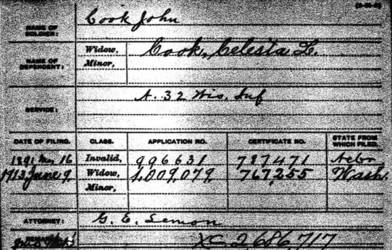 NAME OF SOLDIER: Cook John
NAME OF DEPENDENT: Widow, Cook, Celestia L.
Minor,
SERVICE: A. 32 Wis. Inf
DATE OF FILING. CLASS. APPLICATION NO. CERTIFICATE NO. STATE FROM WHICH FILED.
1891 16 Invalid, 996631 787471 Nebr
1913 June 9. Widow, 1,009,079 767,255 Wash.
Minor,
ATTORNEY: G. E. Lemon
XC 2686717